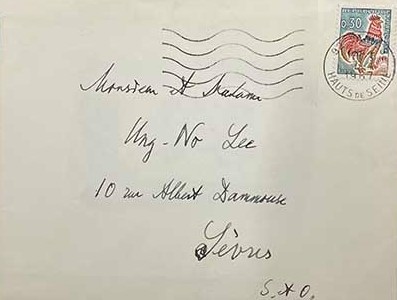 0,30
1967
HAUTS DE SEINE
Monsieur et Madame
Ung-No Lee
10 rue Albert Dammouse
Sèvres
S. & O.